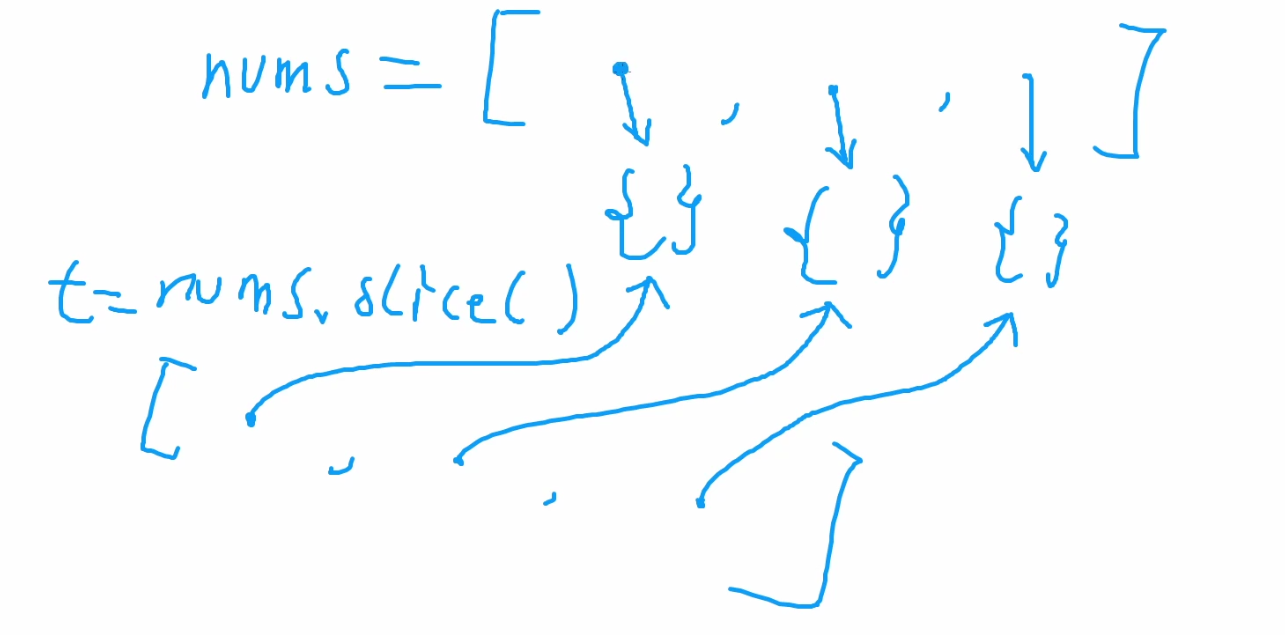 nums = [ , , ]
{ } { } { }
t = nums.slice()
[ , , ]